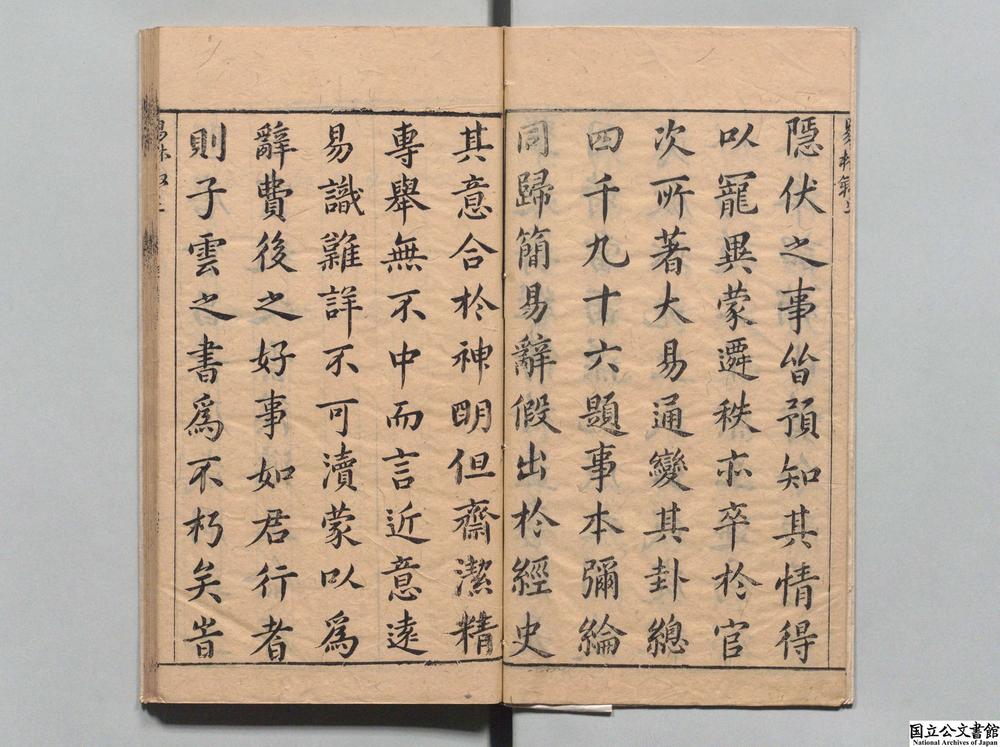 隱伏之事皆預知其情得
以寵異蒙遷秩亦卒於官
次所著大易通變其卦總
四千九十六題事本彌綸
同歸簡易辭假出於經史
其意合於神明但齋潔精
專舉無不中而言近意遠
易識難詳不可瀆蒙以為
辭費後之好事如君行者
則子雲之書爲不朽矣旹
国立公文書館
National Archives of Japan